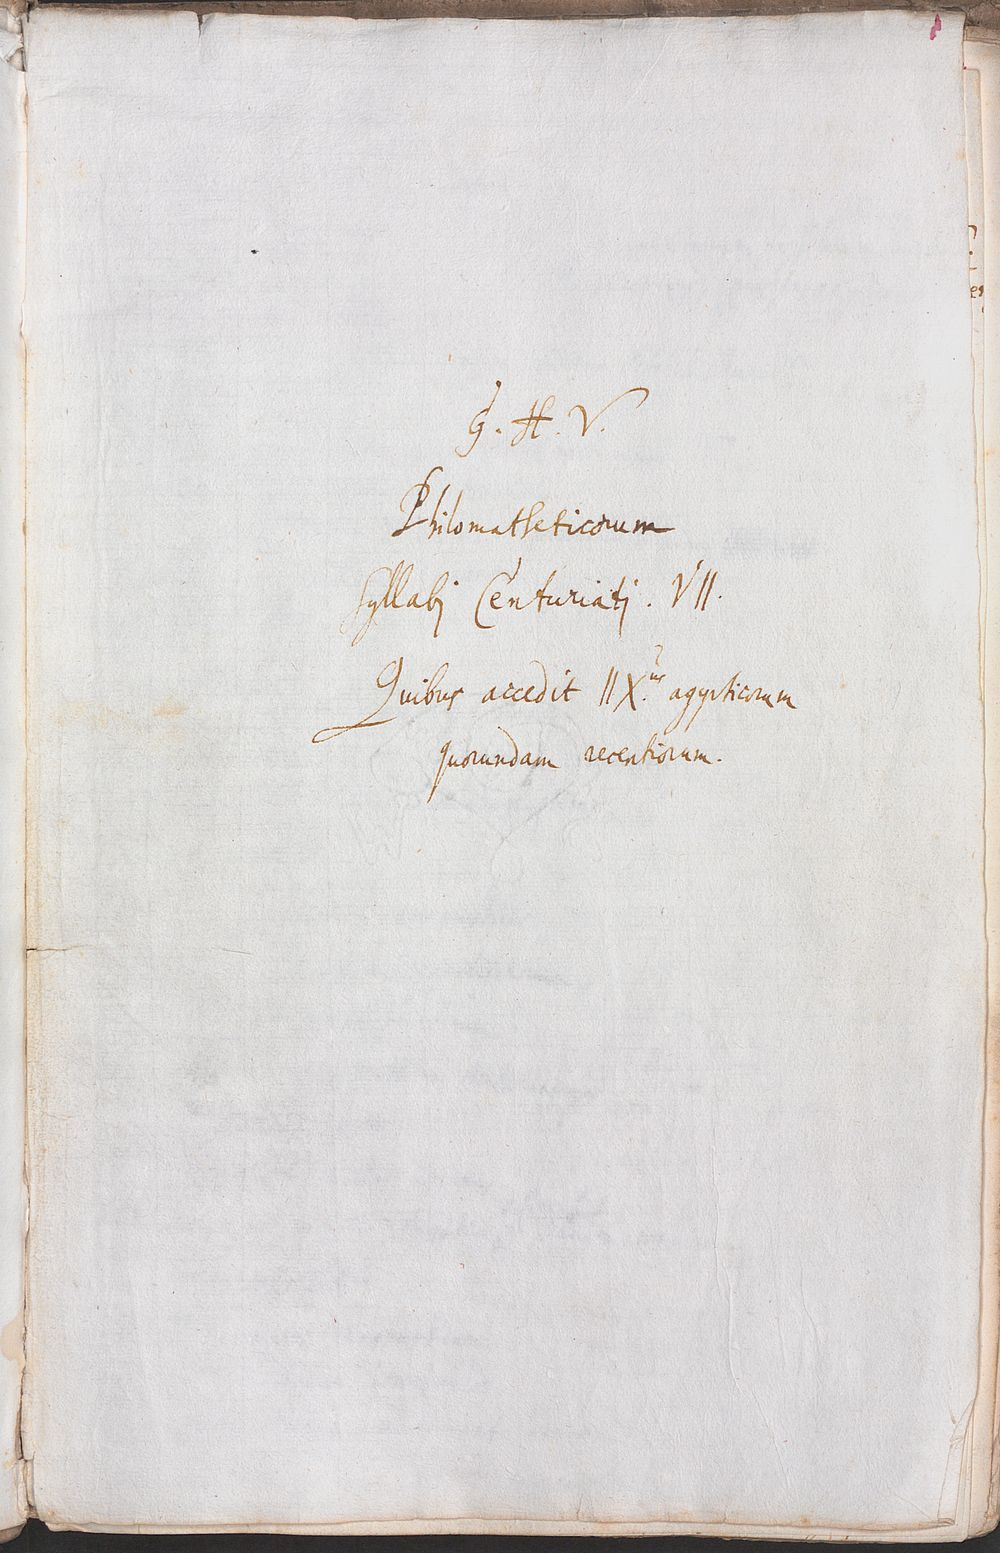 G. H. V.
Philomatheticorum
Syllabj Centuriatj. VII.
Quibus accedit IIX.us agyrticorum
quorundam recentiorum.